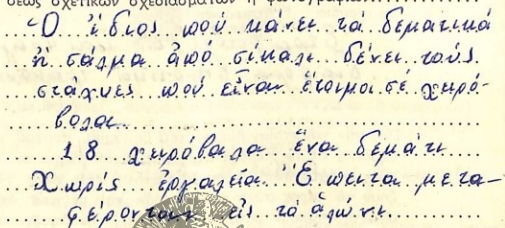 σεως σχετικῶν σχεδιασμάτων ἢ φωτογραφιῶν
Ὁ ἴδιος πού κάνει τά δεματικά
ἤ σάλμα ἀπό σίκαλι δένει τούς
στάχυες πού εἶναι ἕτοιμοι σέ χερό-
βολα.
18 χερόβολα ἕνα δεμάτι
Χωρίς ἐργαλεῖα. Ἔπειτα μετα-
φέρονται εἰς τό ἁλώνι